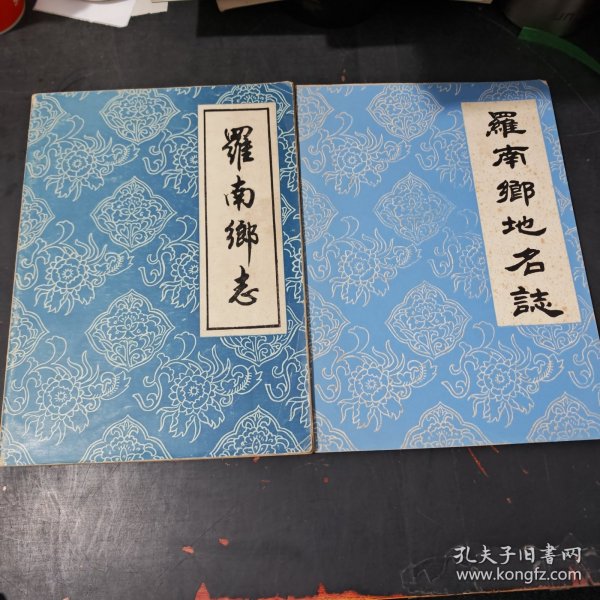 羅南鄉志
羅南鄉地名誌
孔夫子旧书网
www.kongfz.com